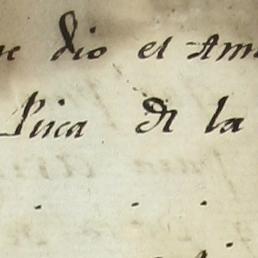 dio el Am
Pirca de la